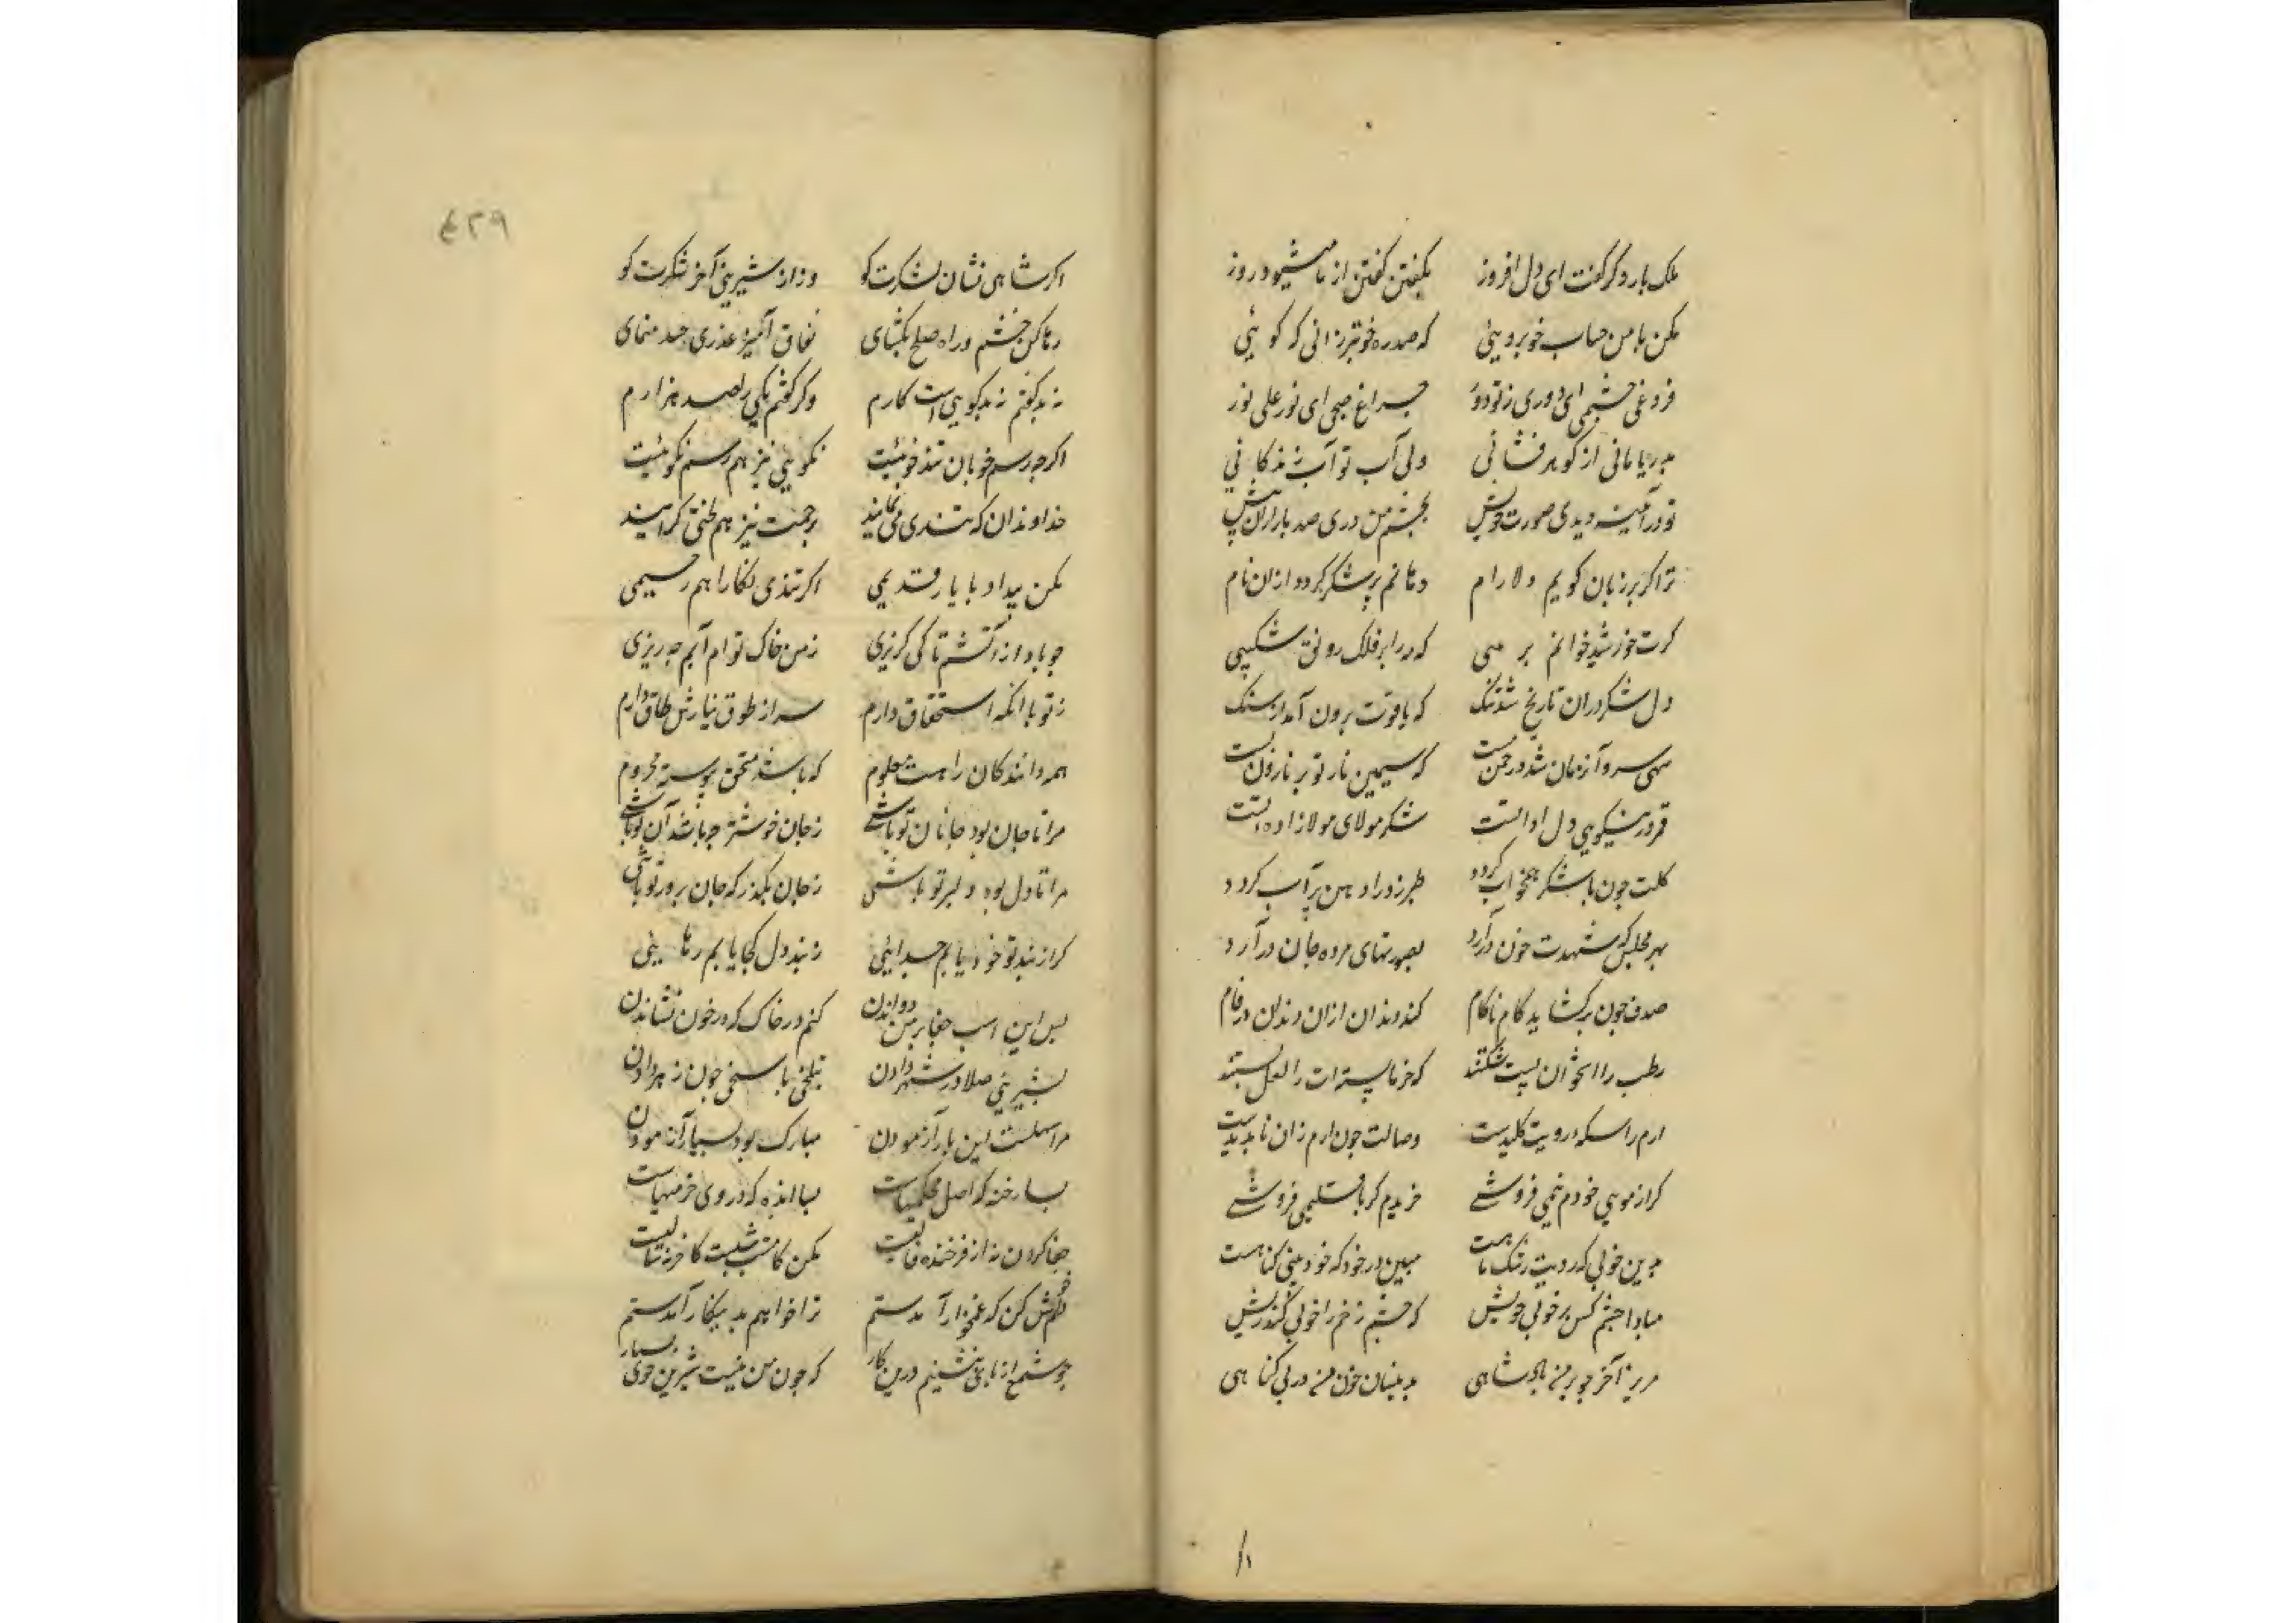 ملک بار دگر گفت ای دل افروز بگفتن گفتن از ما میشود روز
مکن با من حساب خوبرویی که صد ره خوبتر زانی که گویی
فروغ چشمی ای دوری ز تو دور چراغ صبحی ای نور علی نور
بدریا مانی از گوهر فشانی ولی آب تو آب زندگانی
تو در آیینه دیدی صورت خویش بچشم من دری صد بار ازان پیش
ترا گر بر زبان گویم دلارام دهانم پر شکر گردد ازان نام
گرت خورشید خوانم بر مهی که مه را بر فلک رونق شکیبی
دل شکر دران تاریخ شد تنک که یاقوت برون آمد از سنک
سهی سرو آن زمان شد در چمن مست که سیمین نار تو بر نارون بست
قمر در نیکویی دل داده تست شکر مولای مولازاده تست
گلت چون با شکر همخواب گردد طبرزد را دهن پر آب گردد
بهر مجلس که شهدت خون درآرد بصورتهای مرده جان درآرد
صدف چون برگشاید کام ناکام کند دندان ازان دندان در فام
رطب را استخوان پست شکستند که خرما پسته‌ات را لعل بستند
ارم را سکه رویت کلیدست وصالت چون ارم زان ناپدیدست
گر از مویی خودم نیمی فروشی خریدم گر باقلیمی فروشی
بدین خوبی که رویت رشک ماهست مبین در خود که خودبینی گناهست
مبادا چشم کس بر خوبی خویش که چشم زخم را خوبی کند ریش
مریز آخر چو بر من پادشاهی بدینسان خون من در بی گناهی
۴۲۹
اگر شاهی نشان لشکرت کو وز از شیرینی آخر شکرت کو
رها کن خشم و راه صلح بگشای نفاق آمیز عذری چند منمای
نه بد گفتم نه بدگویی است کارم وگر گفتم یکی را صد هزارم
اگرچه رسم خوبان تندخوئیست نکویی نیز هم رسم نکوئیست
خداوندان که تندی می نمایند برحمت نیز هم لختی گرایند
مکن بیداد با یار قدیمی اگر تندی نگارا هم رحیمی
چو باد از آتشم تا کی گریزی ز من خاک توام آبم چه ریزی
ز تو با آنکه استحقاق دارم سر از طوق نیازش طاق دارم
همه دانندگان را هست معلوم که باشد مستحق پیوسته محروم
مرا تا جان بود جانان تو باشی ز جان خوشتر چو باشد آن تو باشی
مرا تا دل بود دلبر تو باشی ز جان بگذر که جان پرور تو باشی
گر از بند تو خود یابم جدایی ز بند دل کجا یابم رهایی
بس این اسب جفا بر من دواندن گهم در خاک گه در خون نشاندن
بشیرینی صلا در شهر دادن بتلخی پاسخی چون زهر دادن
مرا سهلست این بار آزمودن مبارک بود بسیار آزمودن
بسا رخنه که اصل محکمیهاست بسا انده که در وی خرمیهاست
جفا کردن نه از فرخنده فالیست مکن کامشب شبست کاخر نه سالیست
فراموش کن که غمخوار آمدستم ترا خواهم به بیکار آمدستم
چو شمع از پای ننشینم درین کار که چون من نیست شیرین جوی بسیار